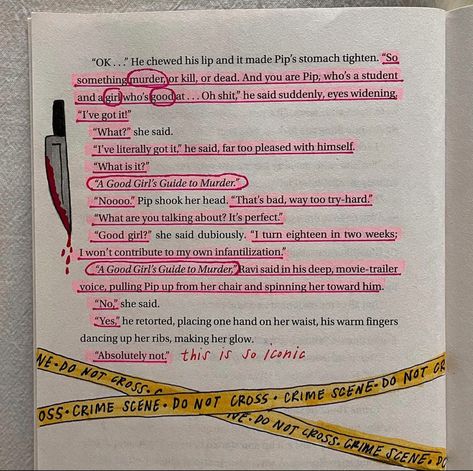 “OK . . .” He chewed his lip and it made Pip’s stomach tighten. “So
something murder, or kill, or dead. And you are Pip, who’s a student
and a girl who’s good at . . . Oh shit,” he said suddenly, eyes widening,
“I’ve got it!”
“What?” she said.
“I’ve literally got it,” he said, far too pleased with himself.
“What is it?”
“A Good Girl’s Guide to Murder.”
“Noooo.” Pip shook her head. “That’s bad, way too try-hard.”
“What are you talking about? It’s perfect.”
“Good girl?” she said dubiously. “I turn eighteen in two weeks;
I won’t contribute to my own infantilization.”
“A Good Girl’s Guide to Murder,” Ravi said in his deep, movie-trailer
voice, pulling Pip up from her chair and spinning her toward him.
“No,” she said.
“Yes,” he retorted, placing one hand on her waist, his warm fingers
dancing up her ribs, making her glow.
“Absolutely not.” this is so iconic
NE · DO NOT CROSS · C
OSS · CRIME SCENE · DO NOT CROSS · CRIME SCENE · DO NOT CR
NE · DO NOT CROSS · CRIME SCENE · DO